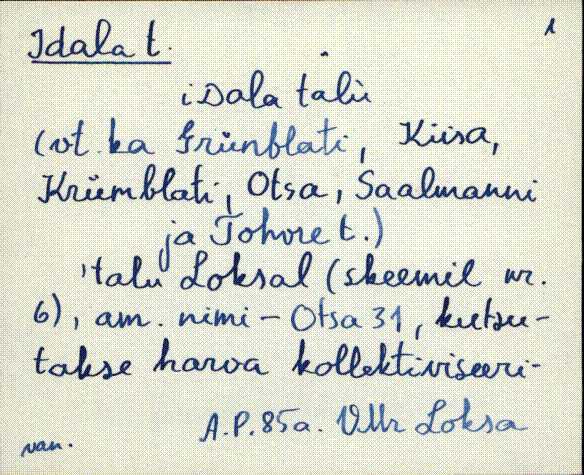 1
Idala t.
iDala talu
(vt. ka Grünblati, Kiisa,
Krümblati, Otsa, Saalmanni
ja Tohvre t.)
'talu Loksal (skeemil nr.
6), am. nimi - Otsa 31, kutsu-
takse harva kollektiviseeri-
A.P. 85a. VMr Loksa
van.